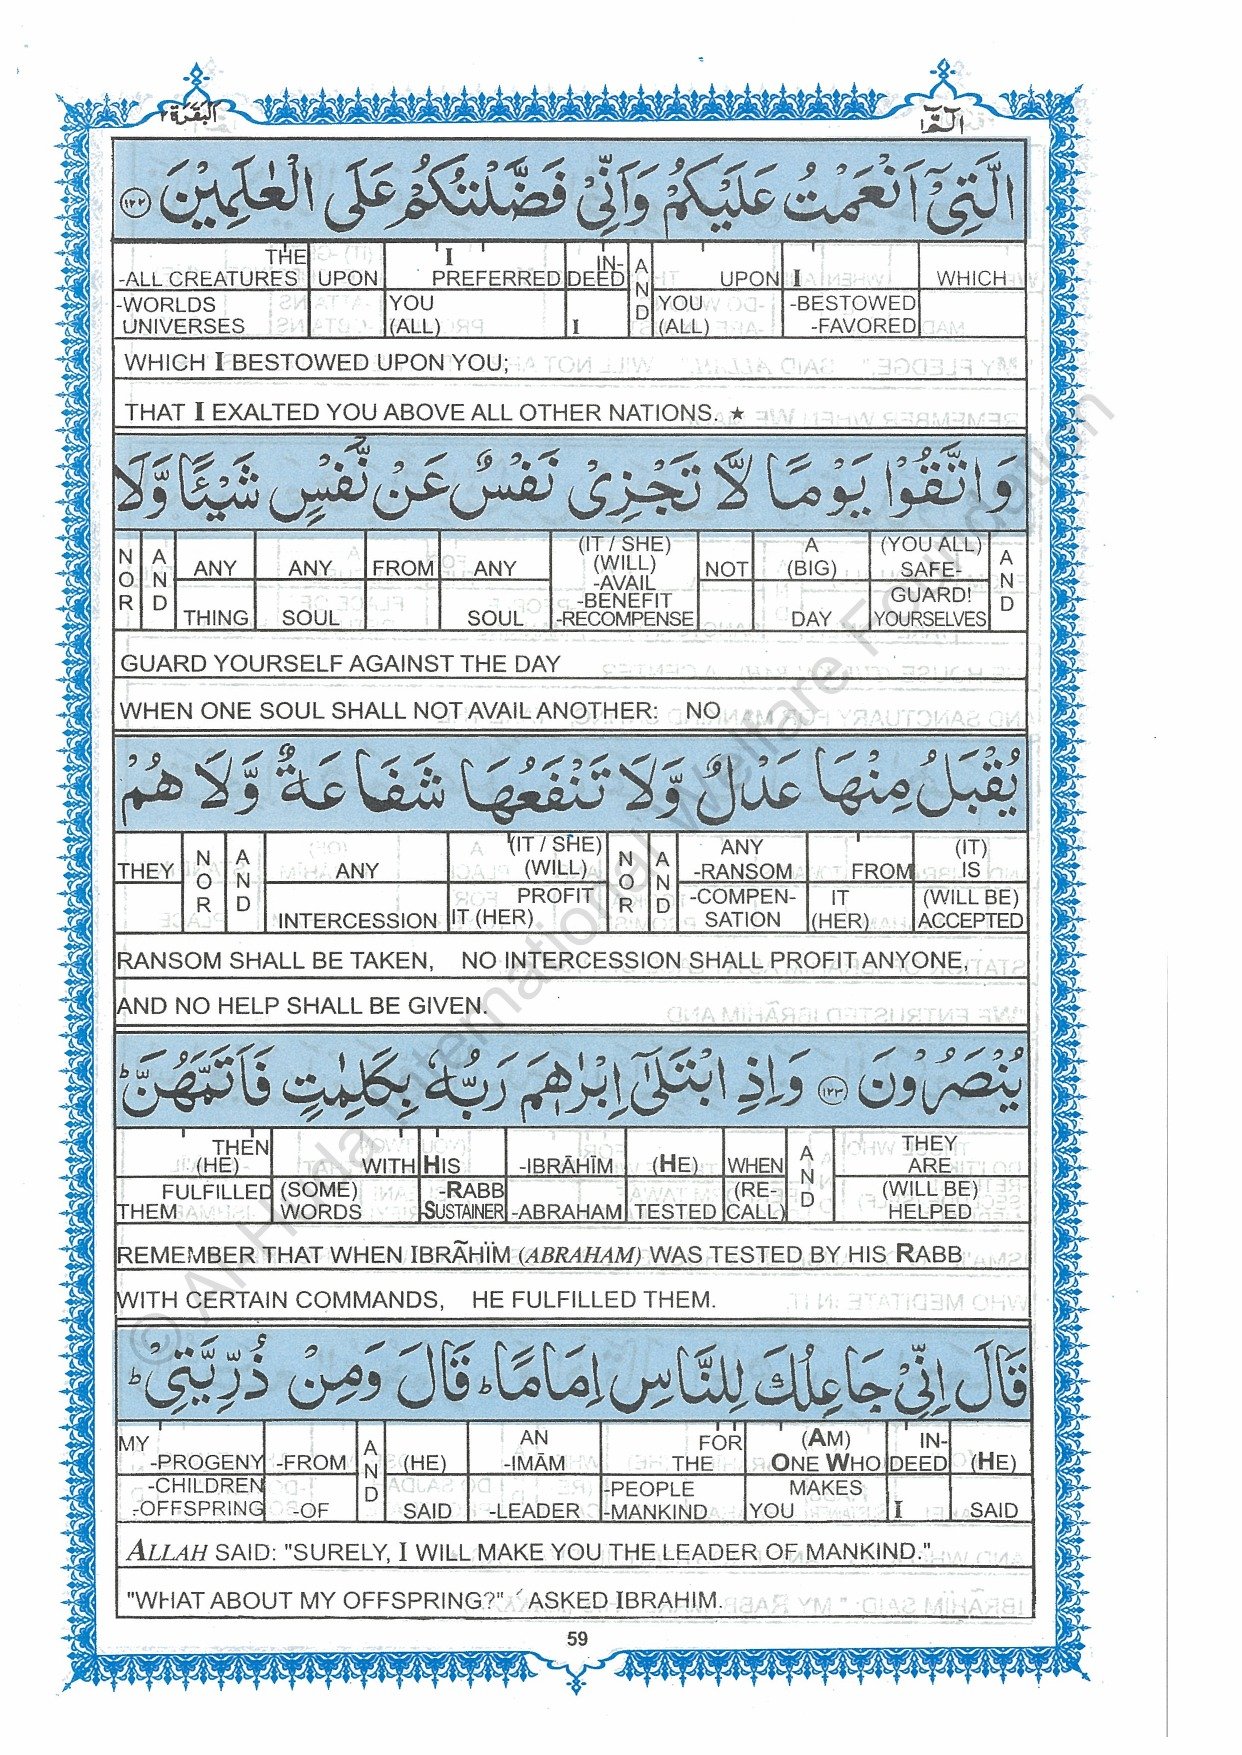 البقرة ٢
الٓمّٓ ١
الَّتِىْٓ اَنْعَمْتُ عَلَيْكُمْ وَاَنِّىْ فَضَّلْتُكُمْ عَلَى الْعٰلَمِيْنَ ١٢٢
THE -ALL CREATURES -WORLDS UNIVERSES | UPON | I PREFERRED YOU (ALL) | IN-DEED I | AND | UPON YOU (ALL) | I -BESTOWED -FAVORED | WHICH
WHICH I BESTOWED UPON YOU;
THAT I EXALTED YOU ABOVE ALL OTHER NATIONS. ★
وَاتَّقُوْا يَوْمًا لَّا تَجْزِىْ نَفْسٌ عَنْ نَّفْسٍ شَيْـًٔا وَّلَا
NOR | AND | ANY THING | ANY SOUL | FROM | ANY SOUL | (IT / SHE) (WILL) -AVAIL -BENEFIT -RECOMPENSE | NOT | A (BIG) DAY | (YOU ALL) SAFE-GUARD! YOURSELVES | AND
GUARD YOURSELF AGAINST THE DAY
WHEN ONE SOUL SHALL NOT AVAIL ANOTHER: NO
يُقْبَلُ مِنْهَا عَدْلٌ وَّلَا تَنْفَعُهَا شَفَاعَةٌ وَّلَا هُمْ
THEY | NOR | AND | ANY INTERCESSION | (IT / SHE) (WILL) PROFIT IT (HER) | NOR | AND | ANY -RANSOM -COMPEN-SATION | FROM IT (HER) | (IT) IS (WILL BE) ACCEPTED
RANSOM SHALL BE TAKEN, NO INTERCESSION SHALL PROFIT ANYONE,
AND NO HELP SHALL BE GIVEN.
يُنْصَرُوْنَ ١٢٣ وَاِذِ ابْتَلٰٓى اِبْرٰهٖمَ رَبُّهٗ بِكَلِمٰتٍ فَاَتَمَّهُنَّ ؕ
THEN (HE) FULFILLED THEM | WITH (SOME) WORDS | HIS -RABB -SUSTAINER | -IBRĀHĪM -ABRAHAM | (HE) TESTED | WHEN (RE-CALL) | AND | THEY ARE (WILL BE) HELPED
REMEMBER THAT WHEN IBRÃHÏM (ABRAHAM) WAS TESTED BY HIS RABB
WITH CERTAIN COMMANDS, HE FULFILLED THEM.
قَالَ اِنِّىْ جَاعِلُكَ لِلنَّاسِ اِمَامًا ؕ قَالَ وَمِنْ ذُرِّيَّتِىْ ؕ
MY -PROGENY -CHILDREN -OFFSPRING | -FROM -OF | AND | (HE) SAID | AN -IMĀM -LEADER | FOR THE -PEOPLE -MANKIND | (AM) ONE WHO MAKES YOU | IN-DEED I | (HE) SAID
ALLAH SAID: "SURELY, I WILL MAKE YOU THE LEADER OF MANKIND."
"WHAT ABOUT MY OFFSPRING?" ASKED IBRAHIM.
59
© Al-Huda International Welfare Foundation